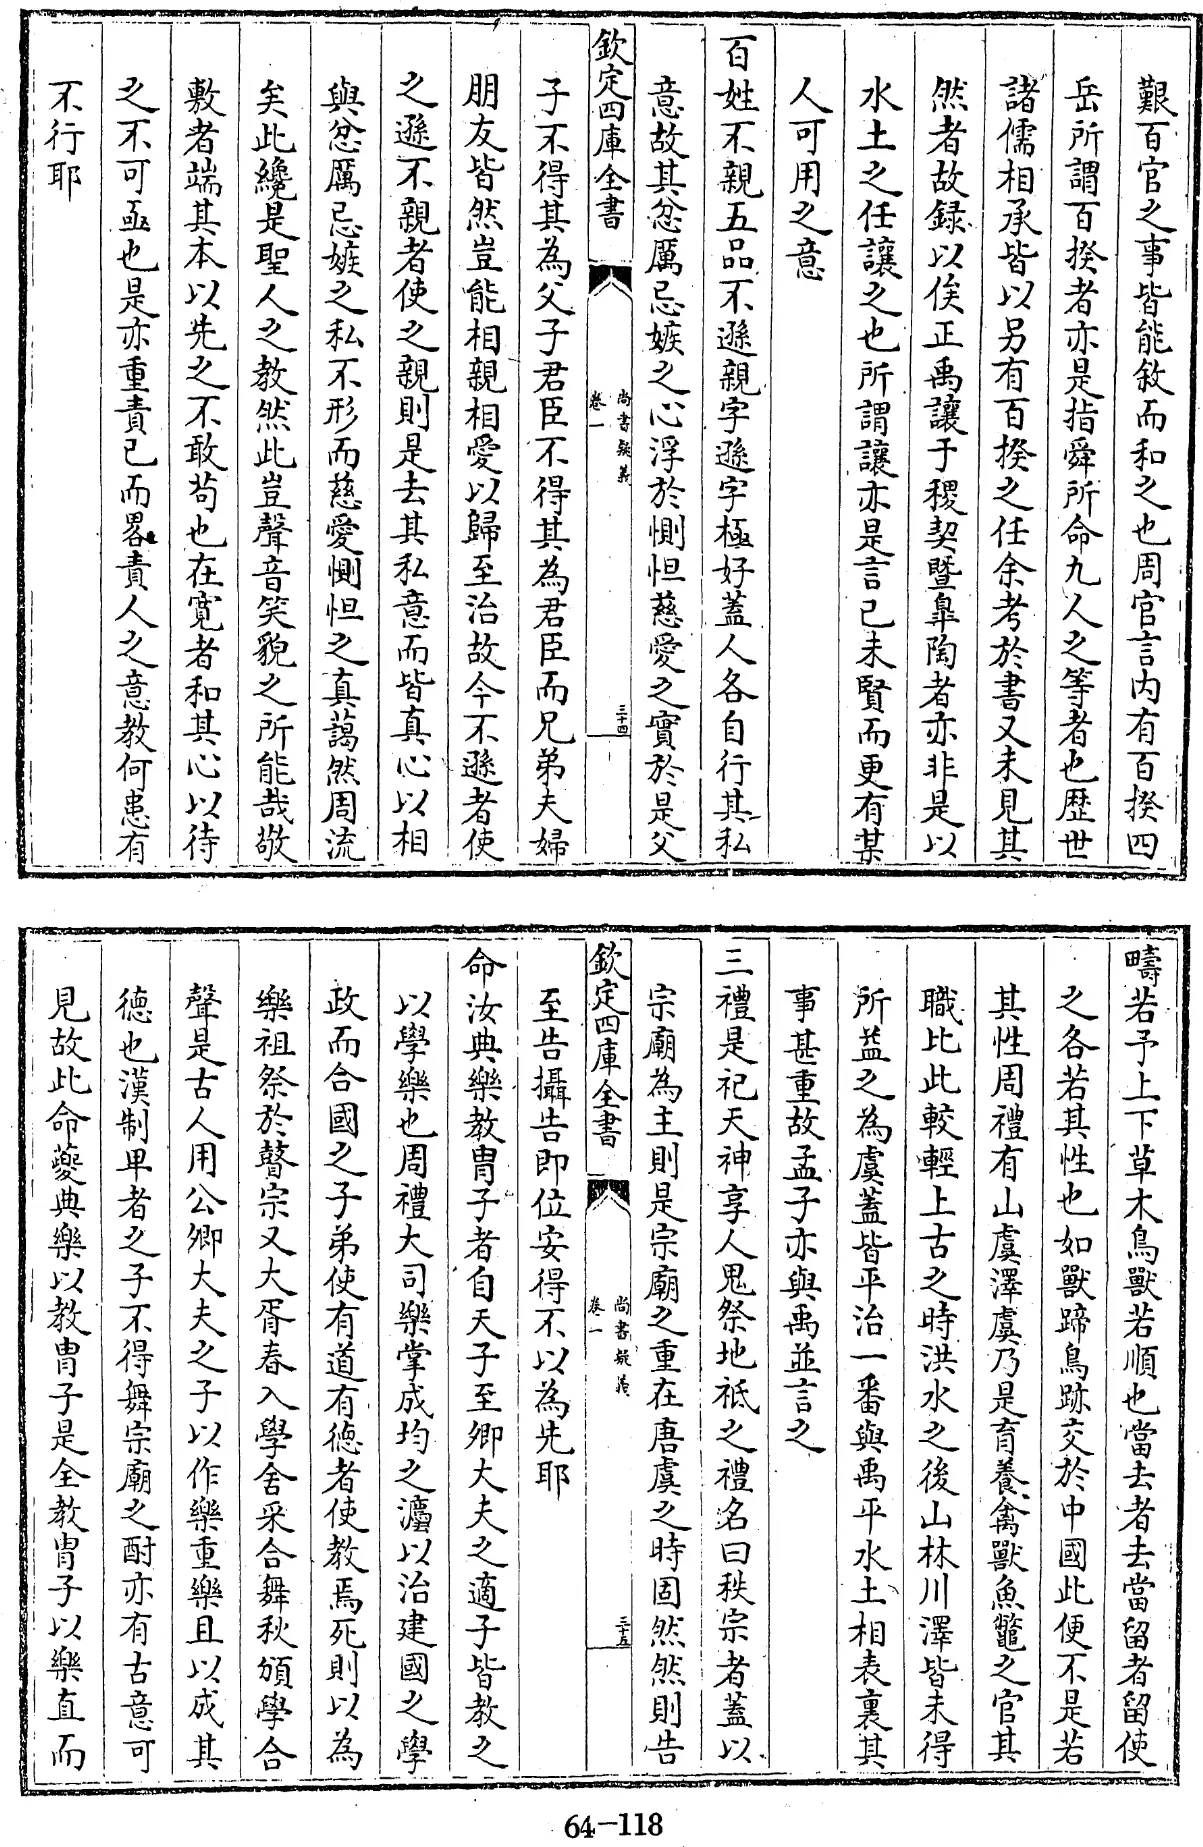 艱百官之事皆能敘而和之也周官言内有百揆四
岳所謂百揆者亦是指舜所命九人之等者也歷世
諸儒相承皆以另有百揆之任余考於書又未見其
然者故録以俟正禹讓于稷契暨臯陶者亦非是以
水土之任讓之也所謂讓亦是言已未賢而更有某
人可用之意
百姓不親五品不遜親字遜字極好蓋人各自行其私
意故其忿厲忌嫉之心浮於惻怛慈愛之實於是父
欽定四庫全書
尚書疑義
卷一
三十四
子不得其為父子君臣不得其為君臣而兄弟夫婦
朋友皆然豈能相親相愛以歸至治故今不遜者使
之遜不親者使之親則是去其私意而皆真心以相
與忿厲忌嫉之私不形而慈愛惻怛之真藹然周流
矣此纔是聖人之教然此豈聲音笑貌之所能哉敬
敷者端其本以先之不敢茍也在寛者和其心以待
之不可亟也是亦重責已而畧責人之意教何患有
不行耶
疇若予上下草木鳥獸若順也當去者去當留者留使
之各若其性也如獸蹄鳥跡交於中國此便不是若
其性周禮有山虞澤虞乃是育養禽獸魚鼈之官其
職比此較輕上古之時洪水之後山林川澤皆未得
所益之為虞蓋皆平治一番與禹平水土相表裏其
事甚重故孟子亦與禹並言之
三禮是祀天神享人鬼祭地祇之禮名曰秩宗者蓋以
宗廟為主則是宗廟之重在唐虞之時固然然則告
欽定四庫全書
尚書疑義
卷一
三十五
至告攝告即位安得不以為先耶
命汝典樂教胄子者自天子至卿大夫之適子皆教之
以學樂也周禮大司樂掌成均之灋以治建國之學
政而合國之子弟使有道有德者使教焉死則以為
樂祖祭於瞽宗又大胥春入學舍采合舞秋頒學合
聲是古人用公卿大夫之子以作樂重樂且以成其
德也漢制卑者之子不得舞宗廟之酎亦有古意可
見故此命夔典樂以教胄子是全教胄子以樂直而
64-118